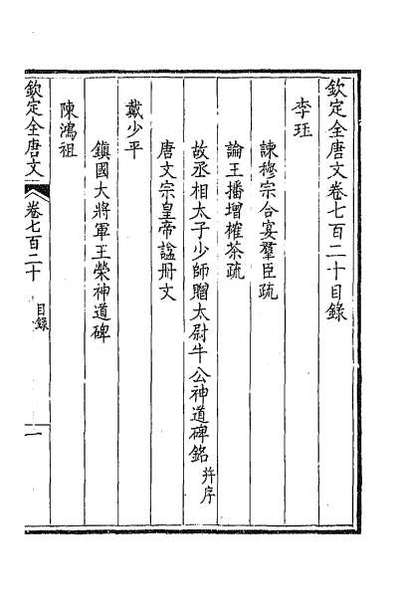 欽定全唐文卷七百二十目錄
李珏
諫穆宗合宴羣臣疏
論王播增榷茶疏
故丞相太子少師贈太尉牛公神道碑銘并序
唐文宗皇帝諡册文
戴少平
鎮國大將軍王榮神道碑
陳鴻祖
欽定全唐文 卷七百二十 目錄 一